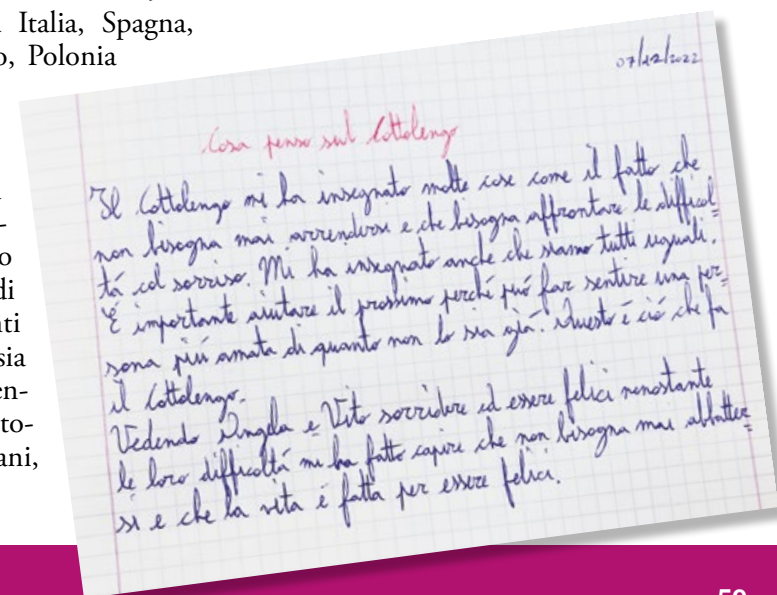 Italia, Spagna,
o, Polonia
-
o
di
ti
sia
en-
to-
ani,
07/12/2022
Cosa penso sul Cottolengo
Il Cottolengo mi ha insegnato molte cose come il fatto che
non bisogna mai arrendersi e che bisogna affrontare le difficol=
tá col sorriso. Mi ha insegnato anche che siamo tutti uguali.
É importante aiutare il prossimo perché puó far sentire una per=
sona piú amata di quanto non lo sia giá. Questo é ció che fa
il Cottolengo.
Vedendo Angela e Vito sorridere ed essere felici nonostante
le loro difficoltá mi ha fatto capire che non bisogna mai abbatter=
si e che la vita é fatta per essere felici.